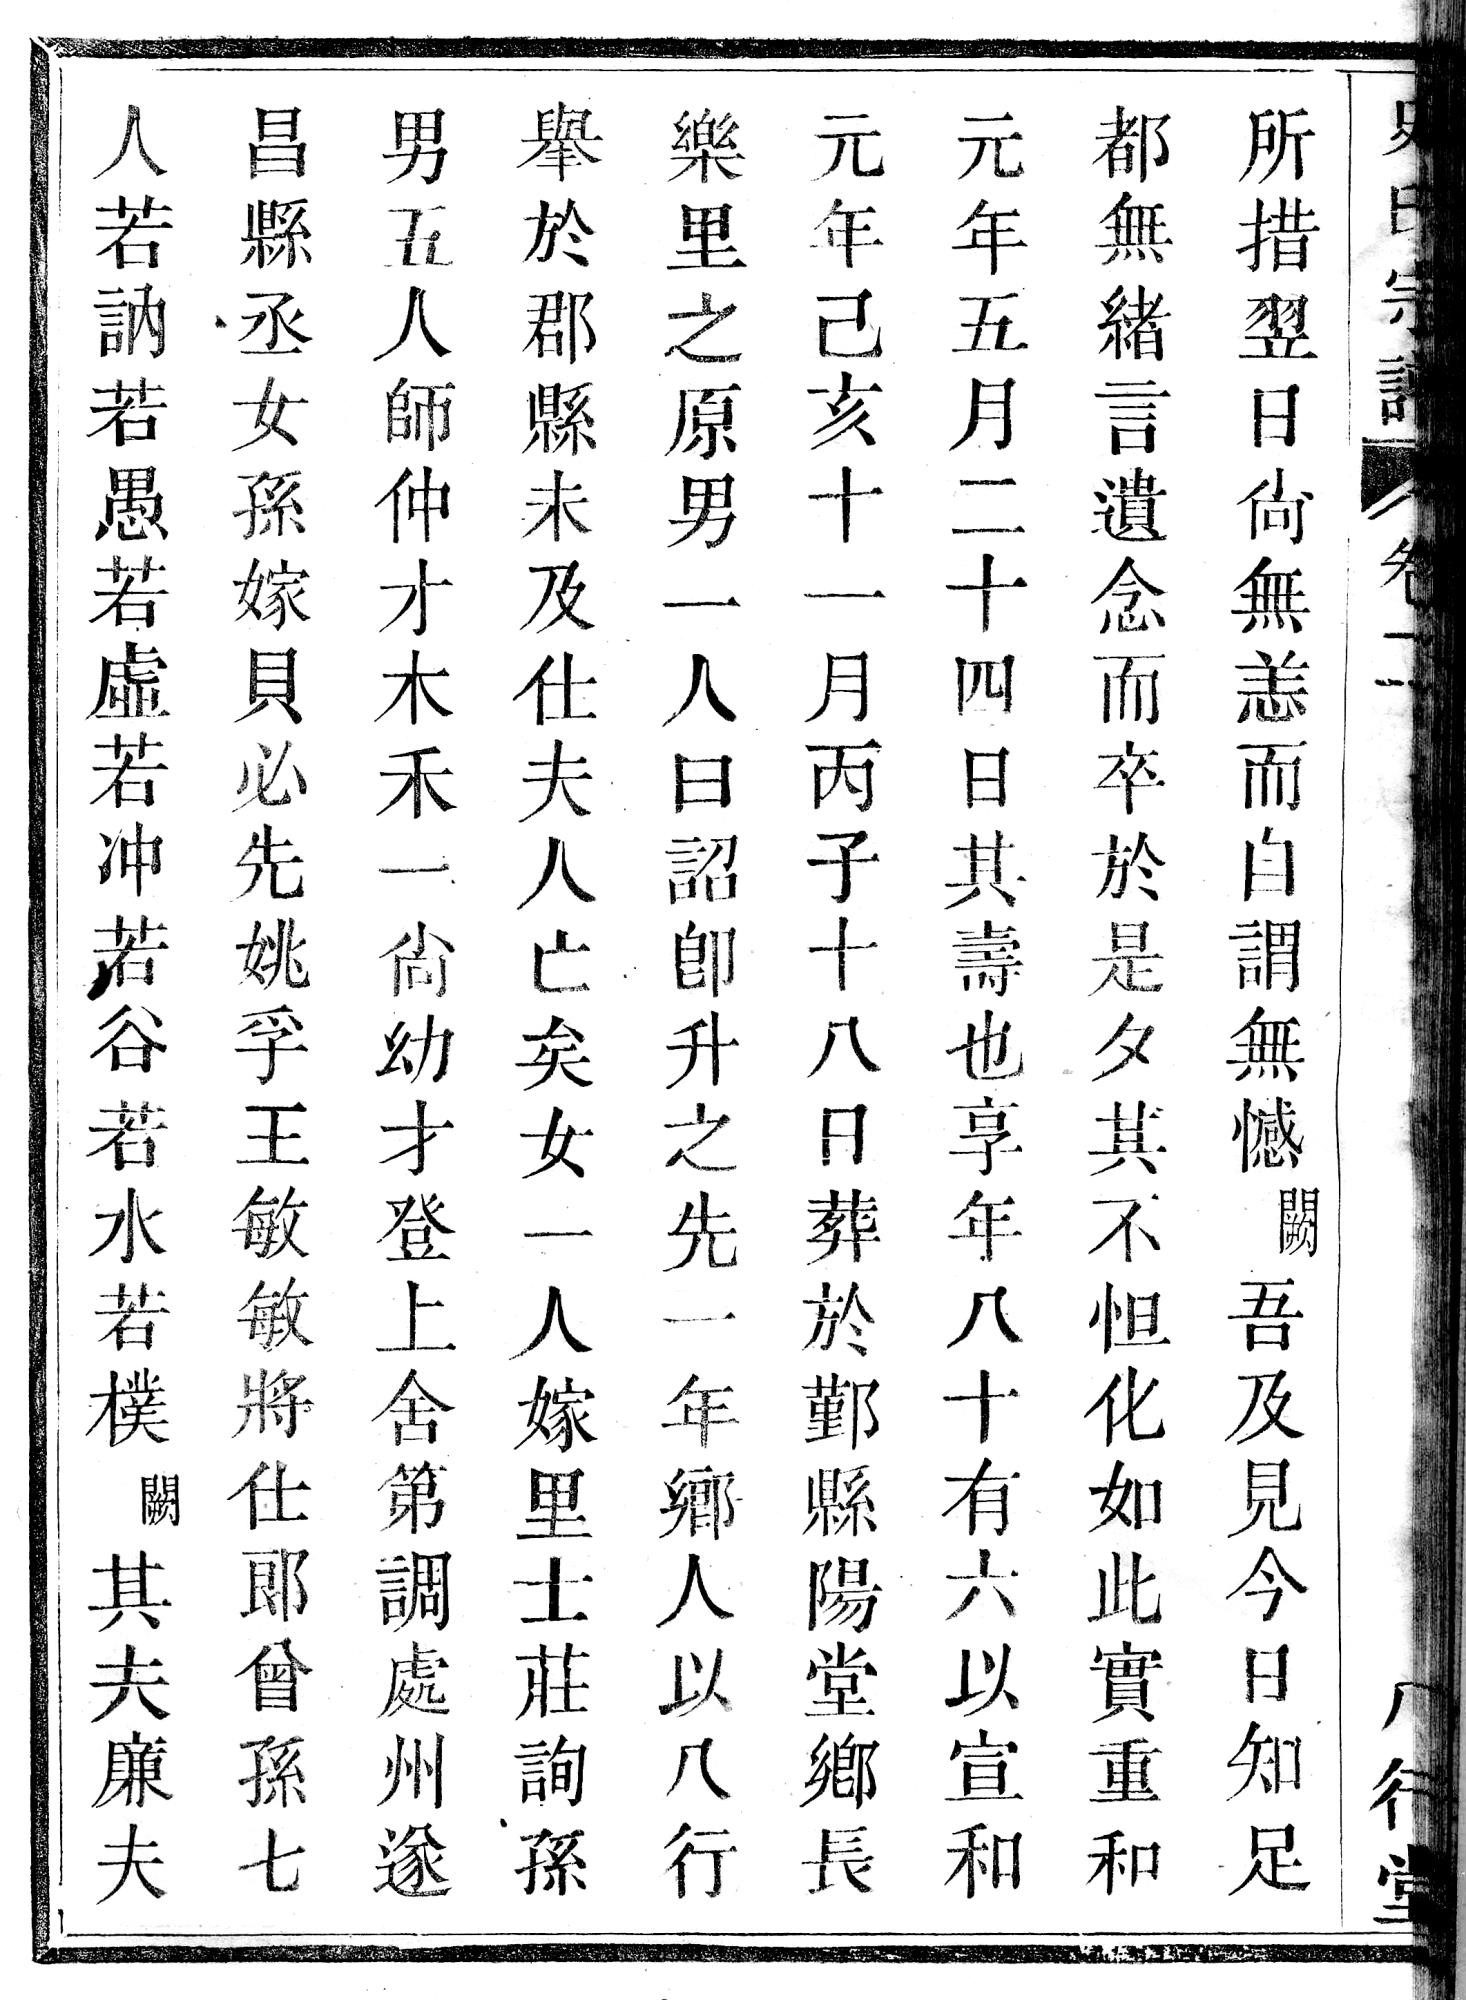 所措翌日尙無恙而自謂無憾闕吾及見今日知足
都無緒言遺念而卒於是夕其不怛化如此實重和
元年五月二十四日其壽也享年八十有六以宣和
元年己亥十一月丙子十八日葬於鄞縣陽堂鄉長
樂里之原男一人曰詔卽升之先一年鄉人以八行
舉於郡縣未及仕夫人亡矣女一人嫁里士莊詢孫
男五人師仲才木禾一尙幼才登上舍第調處州遂
昌縣丞女孫嫁貝必先姚孚王敏敏將仕郎曾孫七
人若訥若愚若虛若冲若谷若水若樸闕其夫廉夫
卷二
八行堂